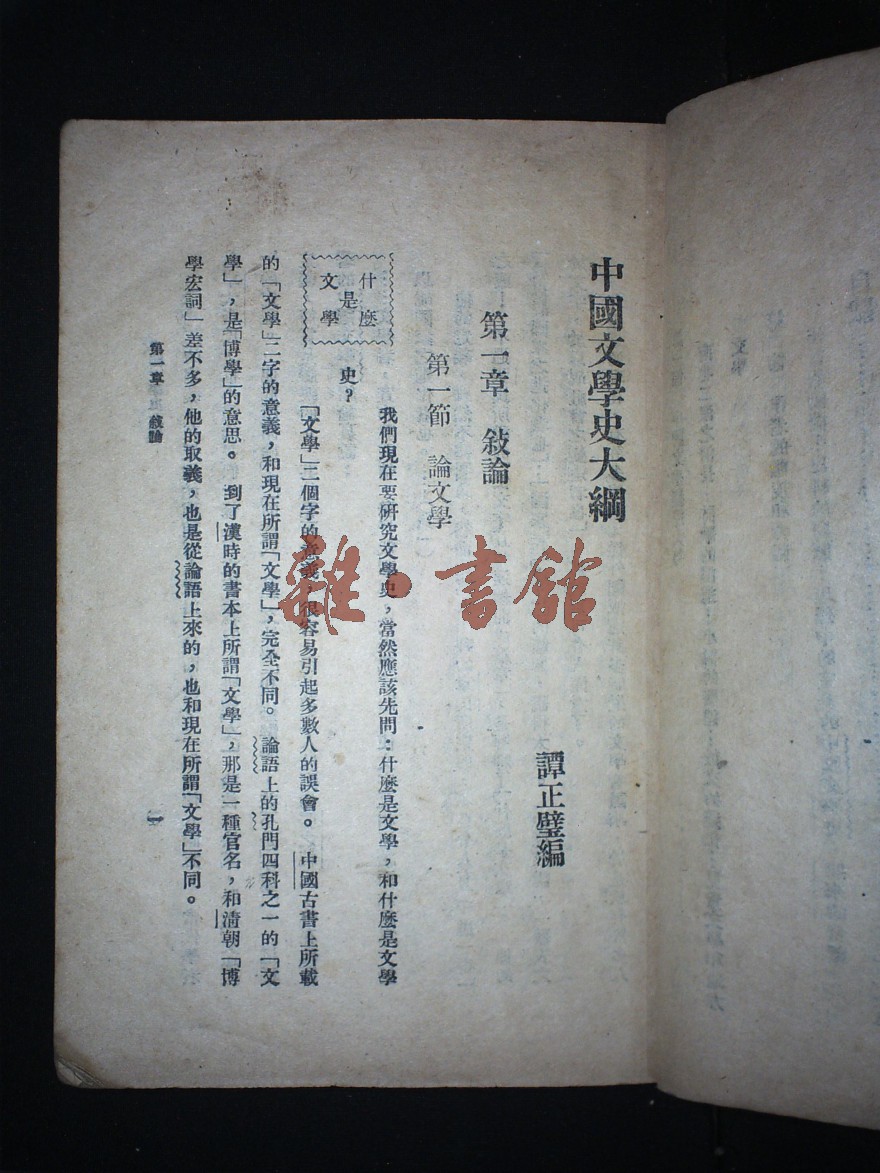 中國文學史大綱
譚正璧編
第一章 敍論
第一節 論文學
什麼
是
文學
我們現在要研究文學史，當然應該先問：什麼是文學，和什麼是文學
史？
「文學」二個字的意義，很容易引起多數人的誤會。中國古書上所載
的「文學」二字的意義，和現在所謂「文學」，完全不同。論語上的孔門四科之一的「文
學」，是「博學」的意思。到了漢時的書本上所謂「文學」，那是一種官名，和淸朝「博
學宏詞」差不多，他的取義，也是從論語上來的，也和現在所謂「文學」不同。
第一章 敍論
一
雜·書館